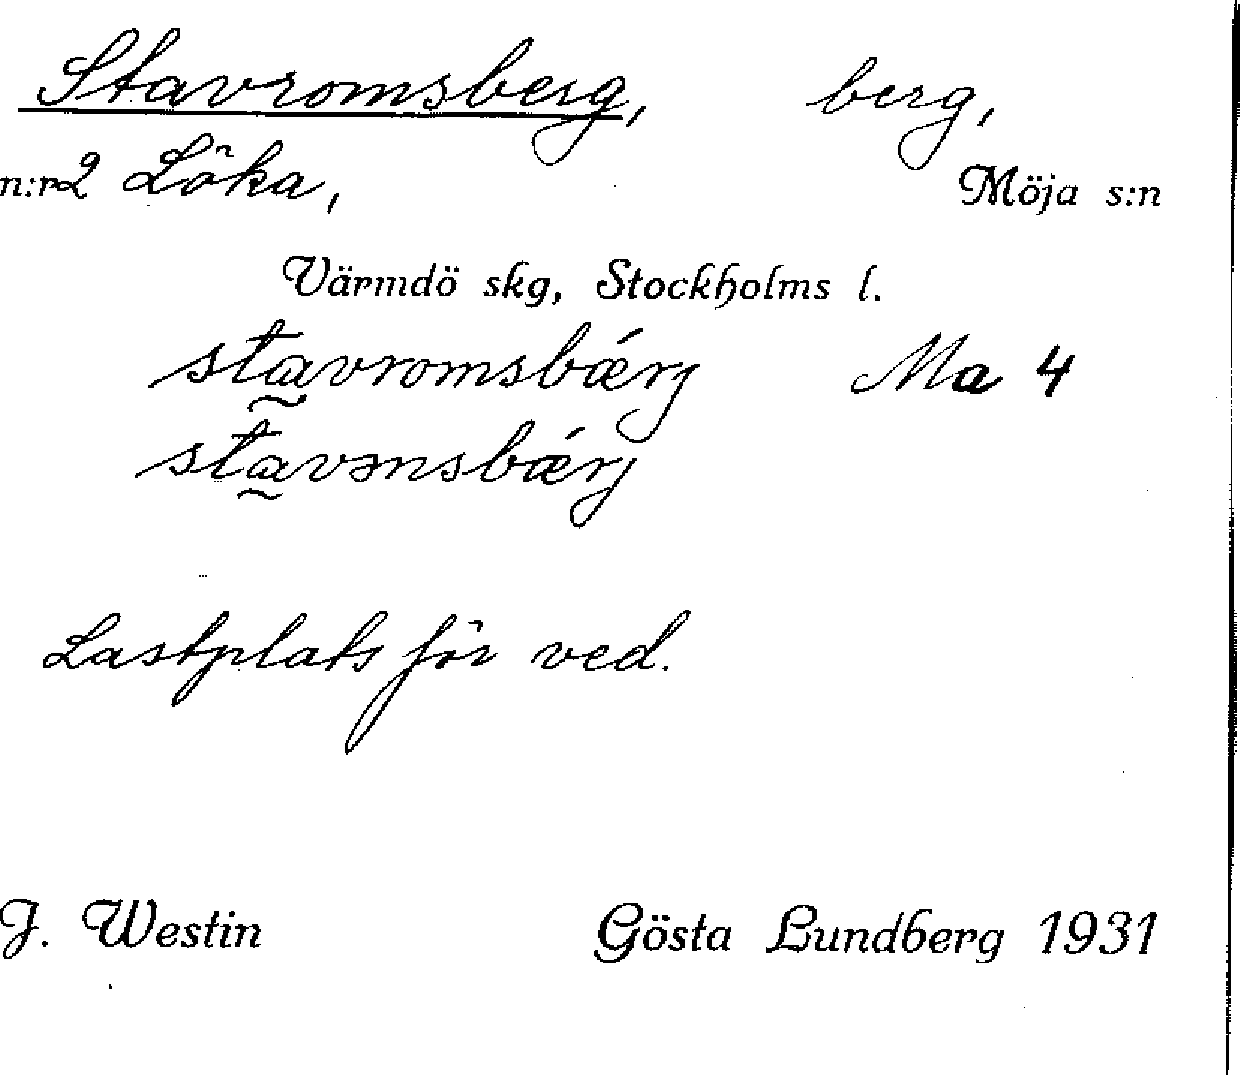 Stavromsberg, berg,
n:r 2 Löka, Möja s:n
Värmdö skg, Stockholms l.
stavromsbǽrj Ma 4
stavənsbǽrj
Lastplats för ved.
J. Westin Gösta Lundberg 1931